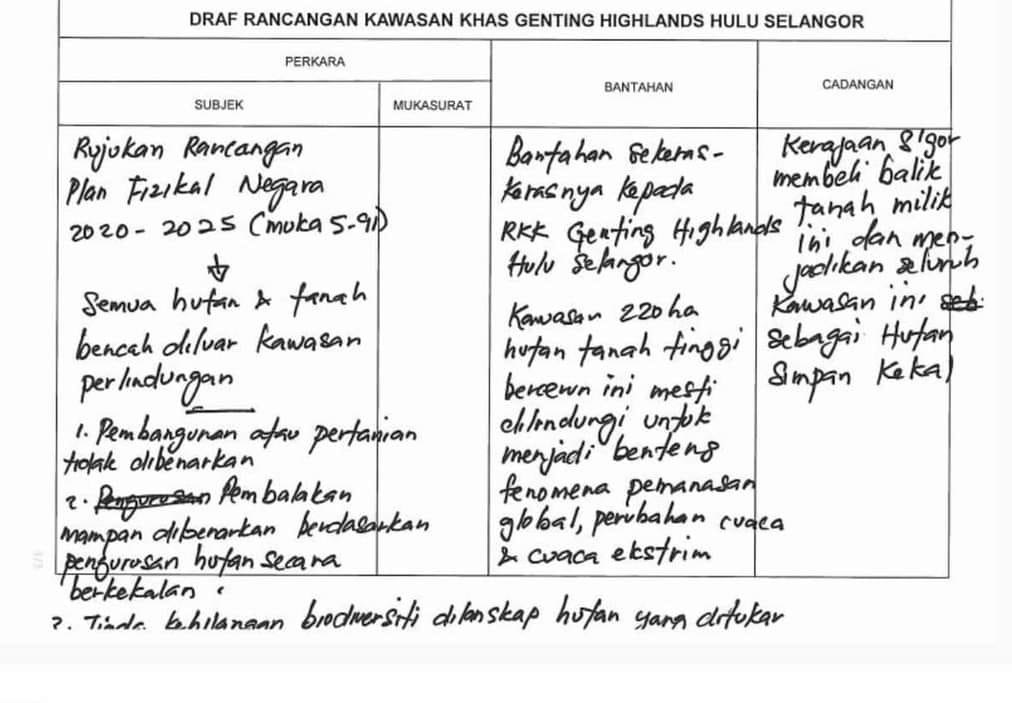 DRAF RANCANGAN KAWASAN KHAS GENTING HIGHLANDS HULU SELANGOR
PERKARA
BANTAHAN
CADANGAN
SUBJEK
MUKASURAT
Rujukan Rancangan
Plan Fizikal Negara
2020-2025 (muka 5-91)
Semua hutan & tanah
bencah diluar kawasan
perlindungan
1. Pembangunan atau pertanian
tidak dibenarkan
2. Pengurusan Pembalakan
mampan dibenarkan berdasarkan
pengurusan hutan secara
berkekalan.
3. Tiada kehilangan biodiversiti dilanskap hutan yang ditukar
Bantahan sekeras-
kerasnya kepada
RKK Genting Highlands
Hulu Selangor.
Kawasan 220 ha
hutan tanah tinggi
bercerun ini mesti
dilindungi untuk
menjadi benteng
fenomena pemanasan
global, perubahan cuaca
& cuaca ekstrim
Kerajaan S'gor
membeli balik
tanah milik
ini dan men-
jadikan seluruh
Kawasan ini seb
sebagai Hutan
Simpan Kekal